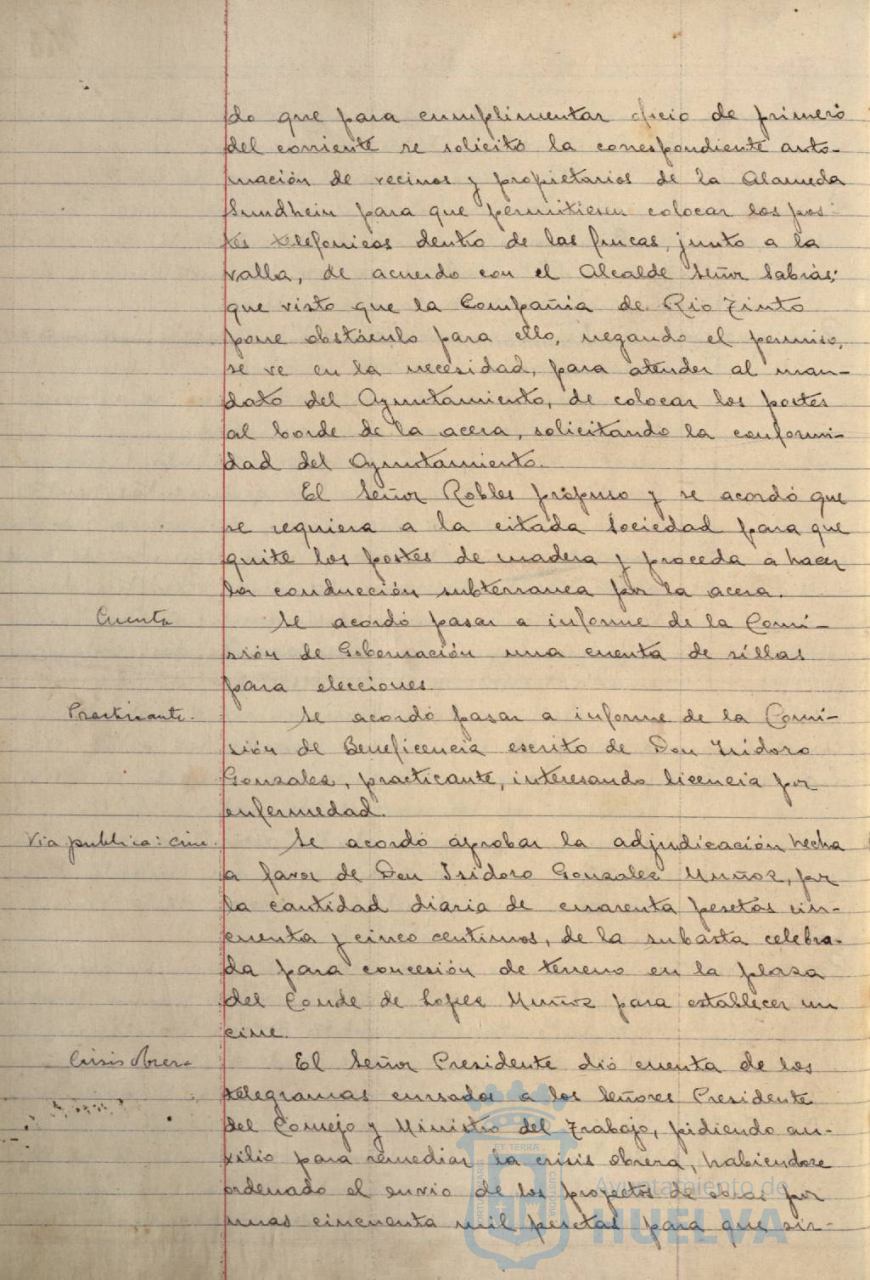 do que para cumplimentar oficio de primero
del corriente se solicitó la correspondiente auto-
rización de vecinos y propietarios de la Alameda
Sundhein para que permitiesen colocar los pos-
tes telefónicos dentro de las fincas, junto a la
valla, de acuerdo con el Alcalde Señor Sabrás;
que visto que la Compañia de Rio Tinto
pone obstáculo para ello, negando el permiso,
se ve en la necesidad, para atender al man-
dato del Ayuntamiento, de colocar los postes
al borde de la acera, solicitando la conformi-
dad del Ayuntamiento.
El Señor Robles propuso y se acordó que
se requiera a la citada Sociedad para que
quite los postes de madera y proceda a hacer
la conducción subterranea por la acera.
Cuenta Se acordó pasar a informe de la Comi-
sión de Gobernación una cuenta de sillas
para elecciones.
Practicante. Se acordó pasar a informe de la Comi-
sión de Beneficencia escrito de Don Isidoro
Gonzalez, practicante, interesando licencia por
enfermedad.
Via publica: cine. Se acordó aprobar la adjudicación hecha
a favor de Don Isidoro Gonzalez Muñoz, por
la cantidad diaria de cuarenta pesetas cin-
cuenta y cinco centimos, de la subasta celebra-
da para concesión de terreno en la plaza
del Conde de Lopez Muñoz para establecer un
cine.
Crisis obrera El Señor Presidente dió cuenta de los
telegramas cursados a los Señores Presidente
del Consejo y Ministro del Trabajo, pidiendo au-
xilio para remediar la crisis obrera, habiendose
ordenado el envio de los proyectos de obras por
unas cincuenta mil pesetas para que sir-
Ayuntamiento de
HUELVA